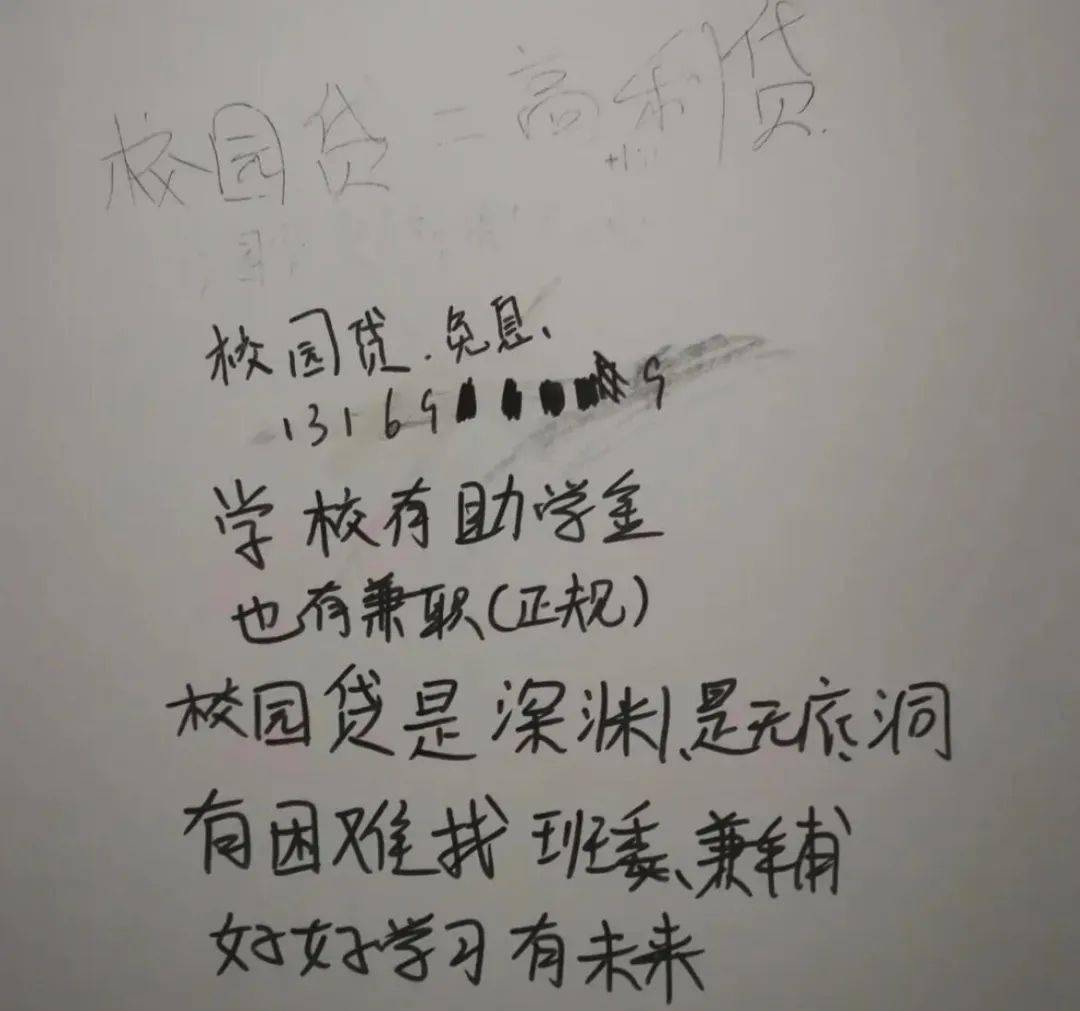 校园贷=高利贷
校园贷.免息、
13169 9
学校有助学金
也有兼职(正规)
校园贷是深渊、是无底洞
有困难找班委、兼辅
好好学习有未来